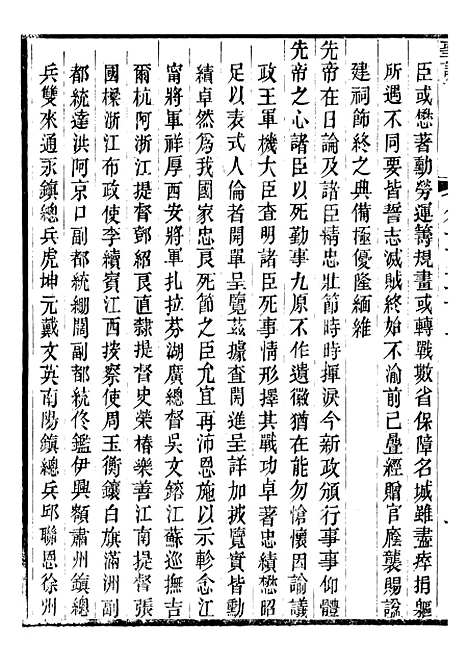 臣或懋著勳勞運籌規畫或轉戰數省保障名城雖盡瘁捐軀
所遇不同要皆誓志滅賊終始不渝前已疊經贈官廕襲賜諡
建祠飾終之典備極優隆緬維
先帝在日論及諸臣精忠壯節時時揮淚今新政頒行事事仰體
先帝之心諸臣以死勤事九原不作遺徽猶在能勿愴懷因諭議
政王軍機大臣查明諸臣死事情形擇其戰功卓著忠績懋昭
足以表式人倫者開單呈覽茲據查開進呈詳加披覽實皆勳
績卓然為我國家忠良死節之臣允宜再沛恩施以示軫念江
甯將軍祥厚西安將軍扎拉芬湖廣總督吳文鎔江蘇巡撫吉
爾杭阿浙江提督鄧紹良直隸提督史榮椿樂善江南提督張
國樑浙江布政使李續賓江西按察使周玉衡鑲白旗滿洲副
都統達洪阿京口副都統繃闊副都統佟鑑伊興額肅州鎮總
兵雙來通永鎮總兵虎坤元戴文英南陽鎮總兵邱聯恩徐州